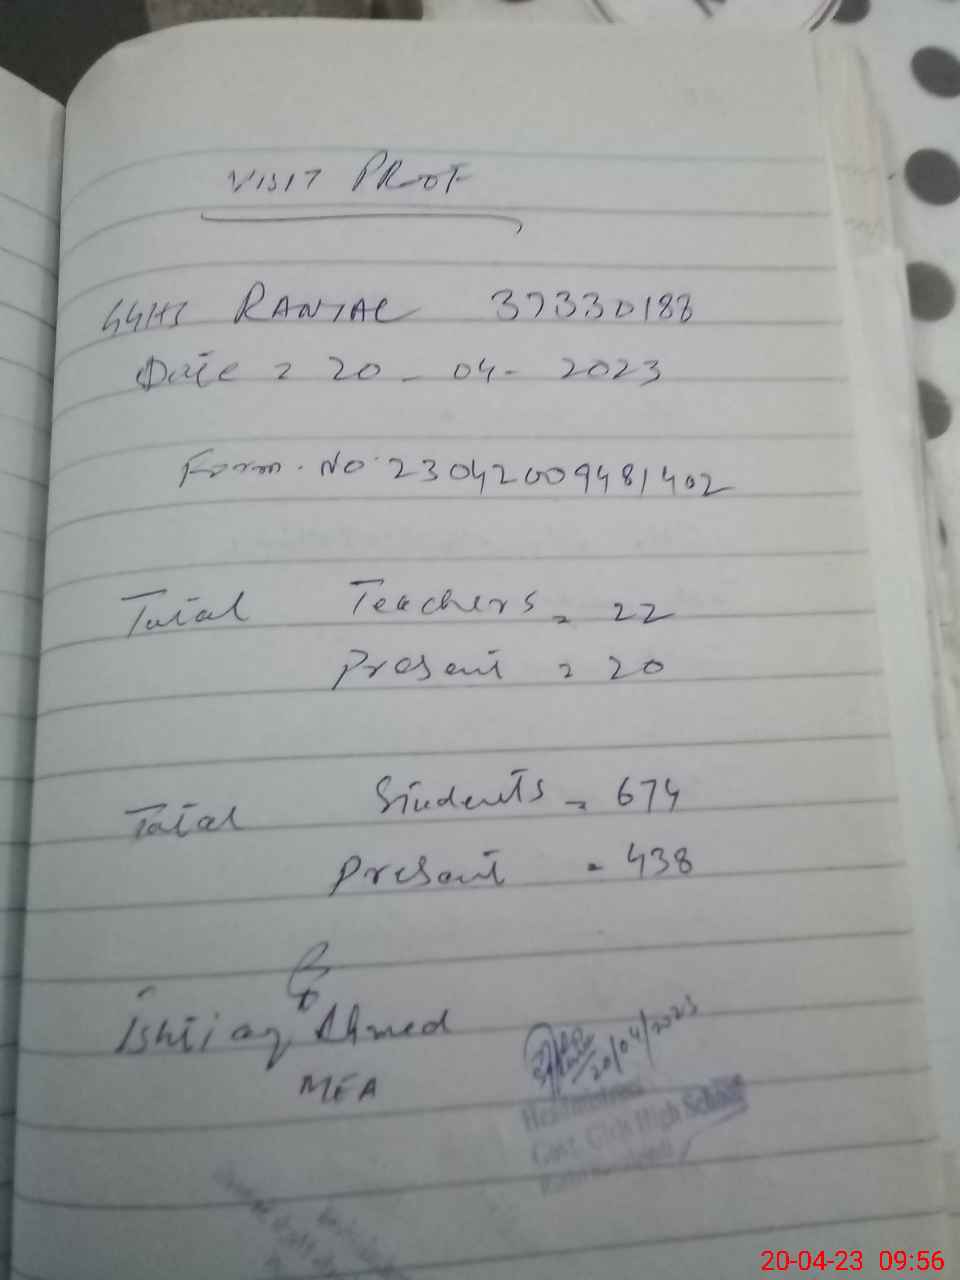 VISIT PROOF
GGHS RANJAL 37330188
Date = 20-04-2023
Form. No. 23042009481402
Total Teachers = 22
Present = 20
Total Students = 674
Present = 438
Ishtiaq Ahmed
MEA
20/04/2023
Headmistress
Govt. Girls High School
20-04-23 09:56